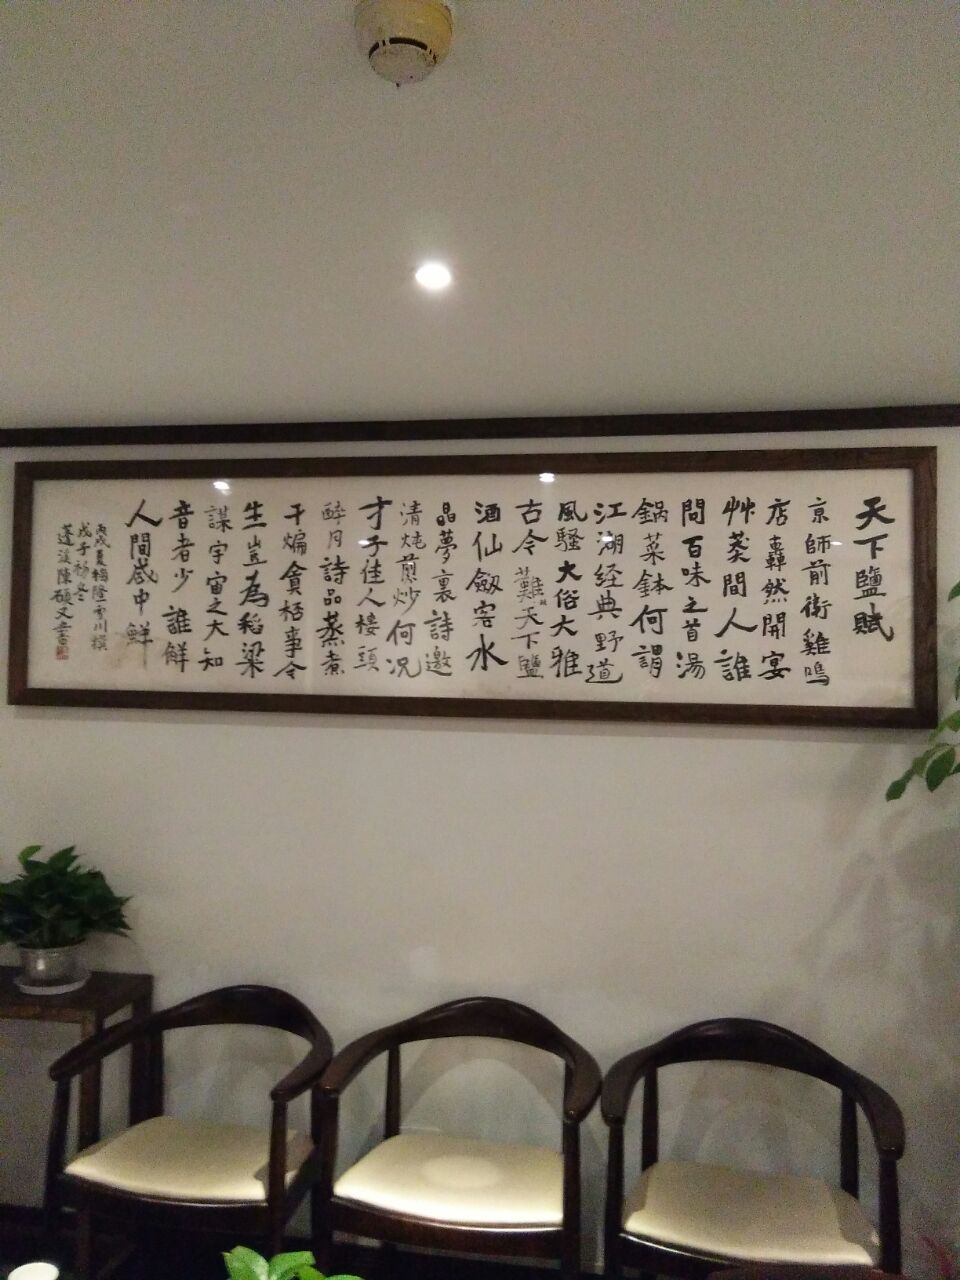 天下鹽賦
京師前街雞鳴
店轟然開宴
艸莽間人誰
問百味之首湯
鍋菜鉢何謂
江湖经典野道
風騷大俗大雅
古今難天下鹽
酒仙劔客水
晶夢裏詩邀
清炖煎炒何况
才子佳人樓頭
醉月詩品蒸煮
干煸貪栖事令
生豈為稻梁
謀宇宙之大知
音者少誰鮮
人間咸中鮮
丙戌夏楊隆雪川撰
戊子初冬
蓬溪陳碩文書